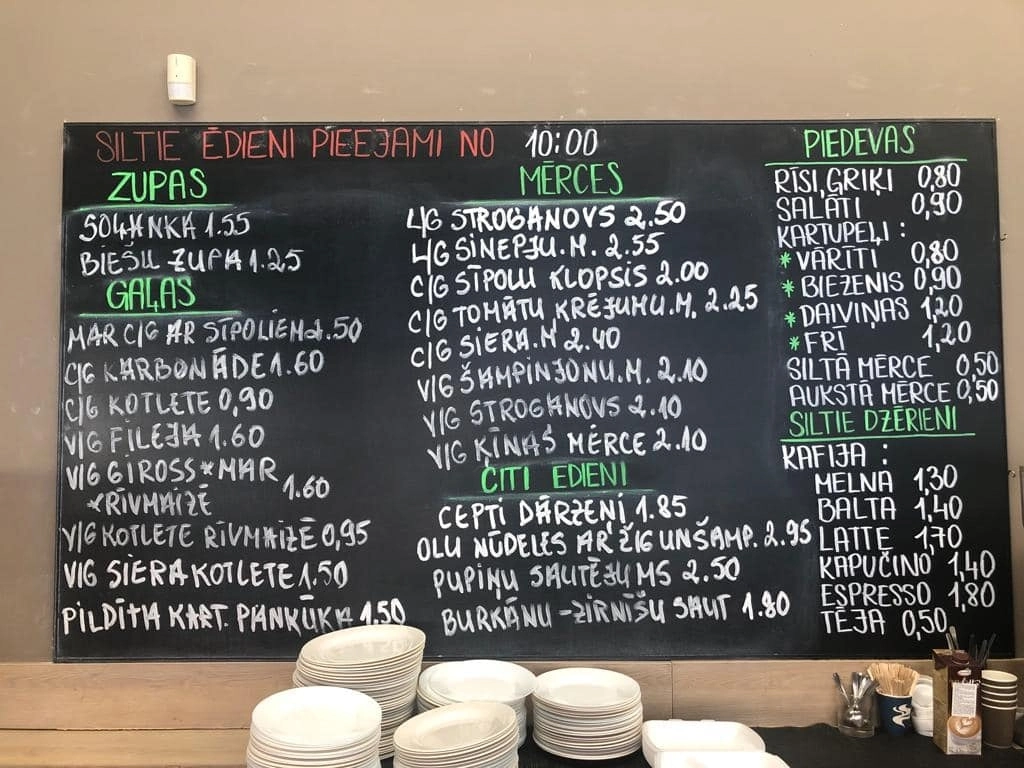 SILTIE ĒDIENI PIEEJAMI NO 10:00
ZUPAS
SOĻANKA 1.55
BIEŠU ZUPA 1.25
GAĻAS
MAR C/G AR SĪPOLIEM 1.50
C/G KARBONĀDE 1.60
C/G KOTLETE 0,90
V/G FILEJA 1.60
V/G GIROSS*MAR
*RĪVMAIZĒ 1.60
V/G KOTLETE RĪVMAIZĒ 0,95
V/G SIERA KOTLETE 1.50
PILDĪTA KART. PANKŪKA 1.50
MĒRCES
L/G STROGANOVS 2.50
L/G SINEPJU.M. 2.55
C/G SĪPOLU KLOPSIS 2.00
C/G TOMĀTU KRĒJUMU.M. 2.25
C/G SIERA.M 2.40
V/G ŠAMPINJONU.M. 2.10
V/G STROGANOVS 2.10
V/G ĶĪNAS MĒRCE 2.10
CITI EDIENI
CEPTI DĀRZEŅI 1.85
OLU NŪDELES AR ŽIG UNŠAMP. 2.95
PUPIŅU SAUTĒJUMS 2.50
BURKĀNU-ZIRNĪŠU SAUT 1.80
PIEDEVAS
RĪSI, GRIĶI 0,80
SALĀTI 0,90
KARTUPEĻI :
* VĀRĪTI 0,80
* BIEZENIS 0,90
* DAIVIŅAS 1,20
* FRĪ 1,20
SILTĀ MĒRCE 0,50
AUKSTĀ MĒRCE 0,50
SILTIE DZĒRIENI
KAFIJA :
MELNA 1,30
BALTA 1,40
LATTE 1,70
KAPUČINO 1,40
ESPRESSO 1,80
TĒJA 0,50